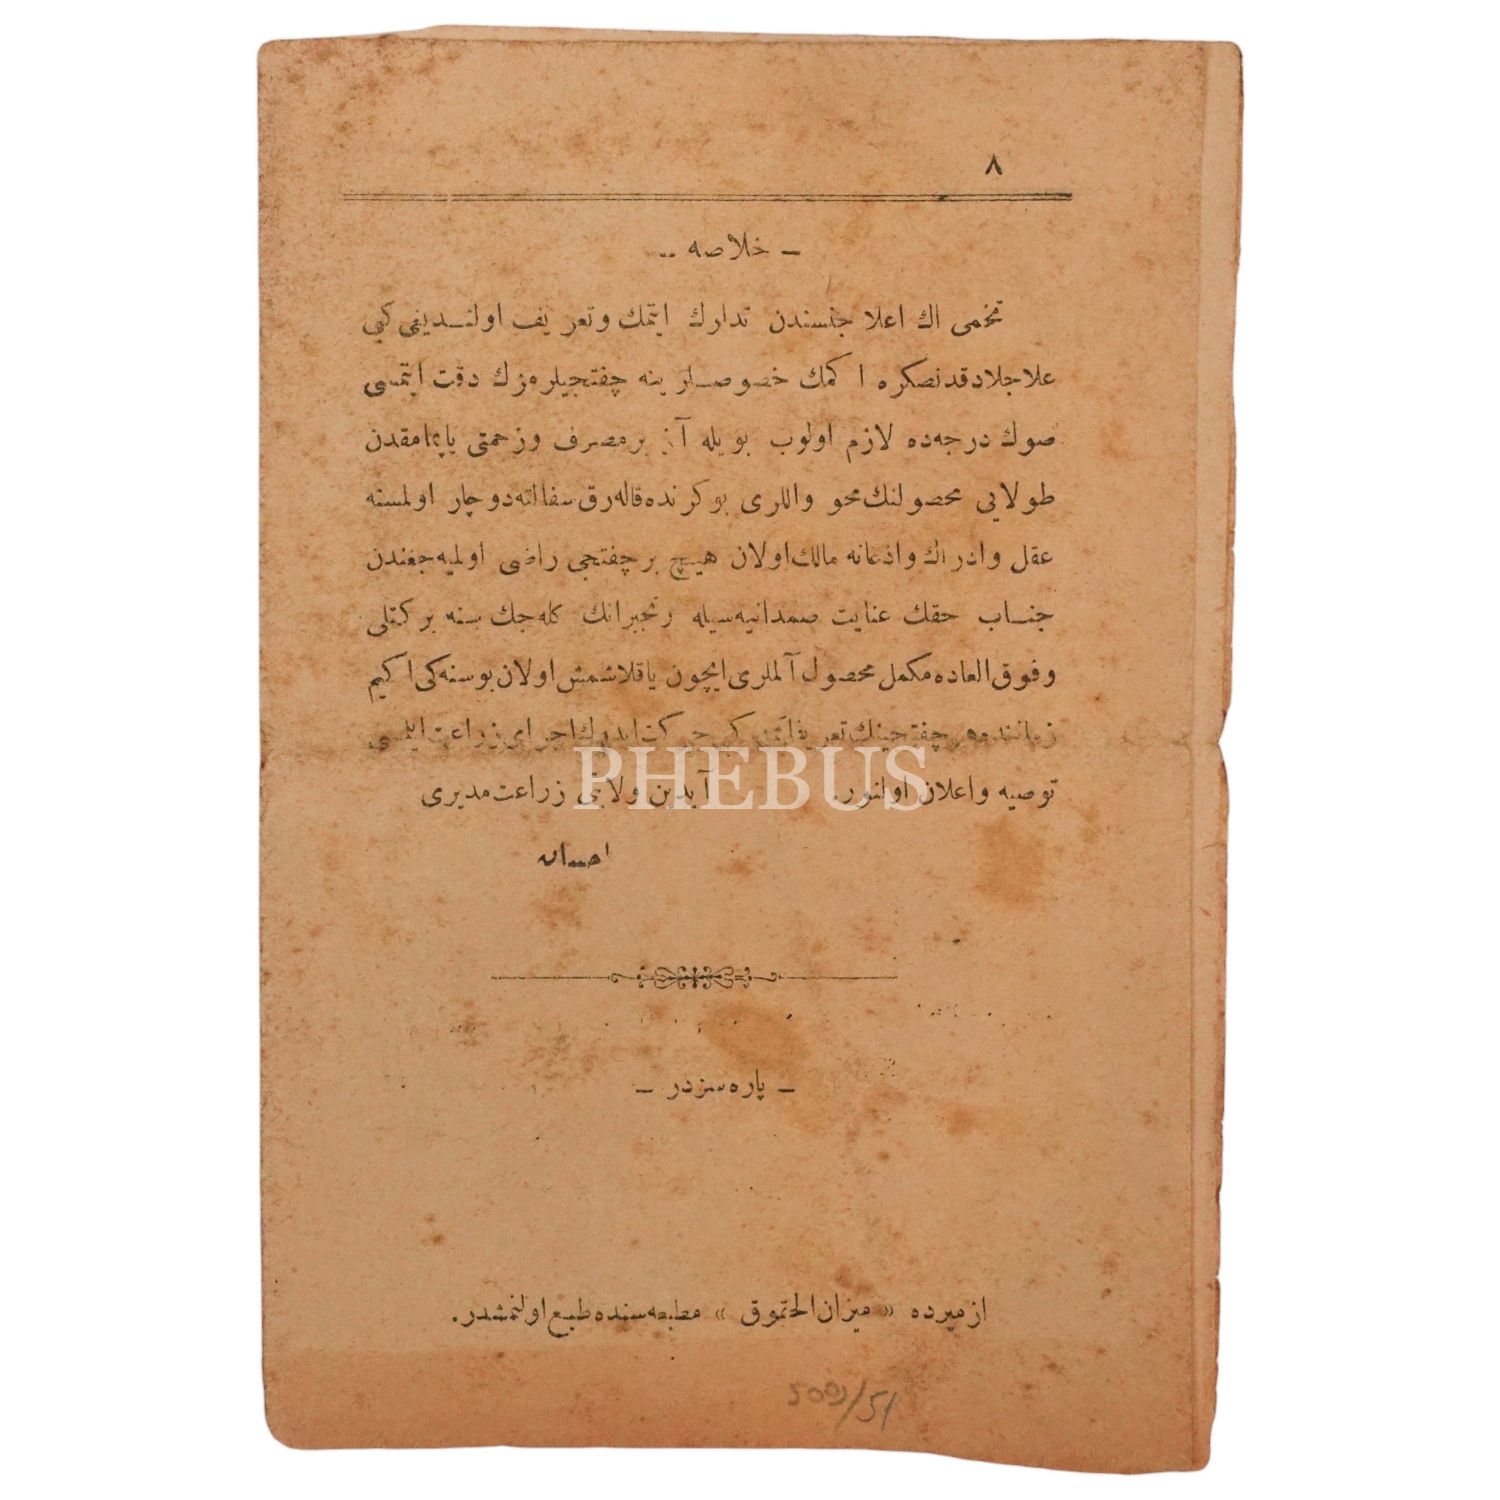 ٨
— خلاصه —
تخمی اك اعلا جنسندن تدارك ایتمك و تعریف اولندیغی كبی
علاجلادقدنصكره اكمك خصوصلرینه چفتجیلره‌زك دقت ایتمسی
صوك درجه‌ده لازم اولوب بویله آز بر مصرف و زحمتی یاپمامقدن
طولایی محصولنك محو واللری بوكرنده قاله‌رق سفالته دوچار اولمسنه
عقل و ادراك و اذعانه مالك اولان هیچ بر چفتجی راضی اولمیه‌جغندن
جناب حقك عنایت صمدانیه‌سیله رنجبرانك كله‌جك سنه بركتلی
و فوق العاده مكمل محصول آلملری ایچون یاقلاشمش اولان بوسنه‌كی اكیم
زماننده هر چفتجینك تعریفاتم كبی حركت ایدرك اجرای زراعت ایلمسی
توصیه و اعلان اولنور. آیدین ولایتی زراعت مدیری
احسان
— پاره‌سزدر —
ازمیرده « میزان الحقوق » مطبعه‌سنده طبع اولنمشدر.
5009/51
PHEBUS